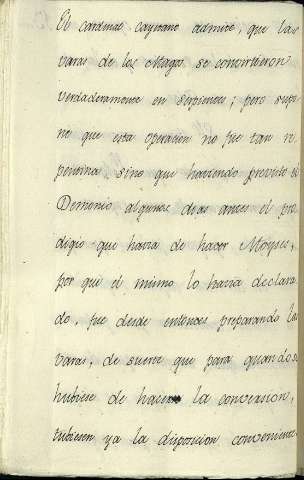 El cardenal cayetano admite, que las
varas de los Magos se convirtieron
verdaderamente en serpientes; pero supo
ne que esta operacion no fue tan re
pentina, sino que haviendo previsto el
Demonio algunos dias antes el pro
digio que havia de hacer Moyses,
por que el mismo lo havia declara
do, fue desde entonces preparando las
varas, de suerte que para quando se
hubiese de hacer la conversion,
tubiesen ya la disposicion conveniente